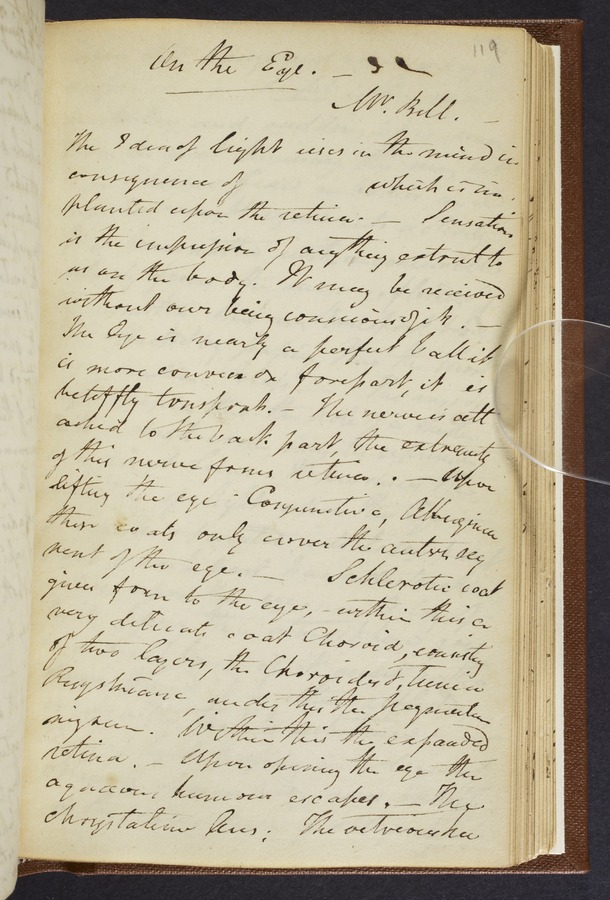 119
On the Eye. —
Mr. Bell. —
The Idea of light rises in the mind in
consequence of which is im-
planted upon the retina. — Sensation
is the impression of anything external to
us on the body. It may be received
without our being conscious of it. —
The Eye is nearly a perfect ball it
is more convex on forepart, it is
transpart. — The nerve is att
ached to the back part, the extremity
of this nerve forms retina. . — Upon
lifting the eye Conjunctiva, Albuginea
these coats only cover the anterr seg
ment of the eye. — Schlerotic coat
gives form to the eye, - within this a
very delicate coat Choroid, consistg
of two layers, the Choroides & tunica
Ruyschiana, under this the pegmentum
nigrum. Within this the expanded
retina. — Upon opening the eye the
aqueous humour escapes. — The
chrystaline lens. The